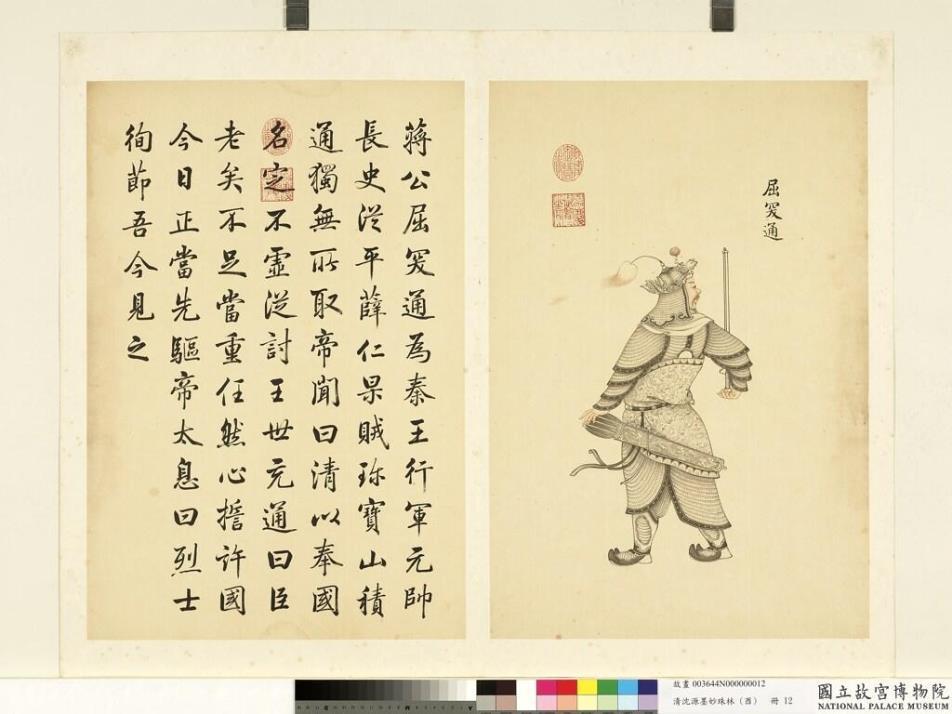 屈突通
蔣公屈突通為秦王行軍元帥
長史從平薛仁杲賊珍寶山積
通獨無所取帝聞曰清以奉國
名定不虛從討王世充通曰臣
老矣不足當重任然心誓許國
今日正當先驅帝太息曰烈士
徇節吾今見之
故畫 003644N000000012
清沈源墨妙珠林（酉） 冊 12
國立故宮博物院
NATIONAL PALACE MUSEUM